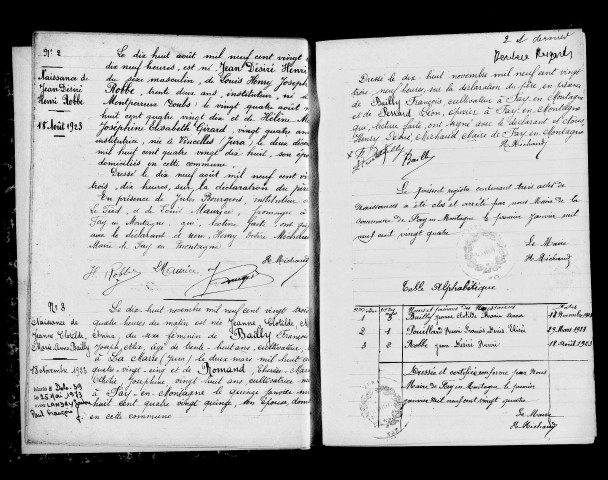 N° 2
Naissance de
Jean Désiré
Henri Robbe
18 Août 1923
Le dix huit août mil neuf cent vingt
dix neuf heures, est né Jean Désiré Henri
du sexe masculin, de Louis Henry Joseph
Robbe, trente deux ans, instituteur, né à
Montperreux Doubs le vingt quatre août
huit cent quatre vingt dix et de Hélène
Joséphine Elisabeth Girard vingt quatre ans
institutrice, née à Vincelles (Jura) le deux
mil huit cent quatre vingt dix huit, son
domiciliés en cette commune
Dressé le dix neuf août mil neuf cent
trois, dix heures, sur la déclaration du père
En présence de Jules Bourgeois, instituteur
et de Louis Maurice, fromager à
Fay en Montagne, qui, lecture faite, ont
avec le déclarant et nous, Henry Désiré Michaud
Maire de Fay en Montagne
H. Michaud
H Robbe LMaurice
N° 3
Naissance de
Jeanne Clotilde
Marie Anna Bailly
18 novembre 1923
Le dix huit novembre mil neuf cent vingt trois
quatre heures du matin est née Jeanne Clotilde
Anna, du sexe féminin de Bailly François
Joseph, âgé de trente-huit ans, cultivateur
à La Marre (Jura) le deux mars mil huit
quatre-vingt-cinq et de
Joséphine vingt huit ans cultivatrice
à Fay-en-Montagne le quinze janvier
huit cent quatre vingt quinze, son épouse,
en cette commune
2 et dernier
Dressé le dix huit novembre mil neuf cent vingt
trois, neuf heures, sur la déclaration du père en présence
de Bailly François, cultivateur à Fay, en Montagne
et de Léon, à Fay, en Montagne
qui, lecture faite, ont signé avec le déclarant et Nous,
Henry, Désiré, Michaud, Maire de Fay, en Montagne
H. Michaud
Bailly
Le présent registre contenant trois actes de
Naissances a été clos et arrêté par nous Maire de la
Commune de Fay en Montagne le premier Janvier mil
neuf cent vingt quatre.
Le Maire
H. Michaud
Table Alphabétique
Noms et prénoms des Dates
1 3 Bailly Jeanne Clotilde Marie Anna 18 Novembre 1923
2 1 29 Mars 1923
3 2 Robbe Jean Désiré Henri 18 Août 1923
Dressée et certifiée conforme par Nous
Maire de Fay en Montagne le premier
janvier mil neuf cent vingt quatre
Le Maire
H. Michaud